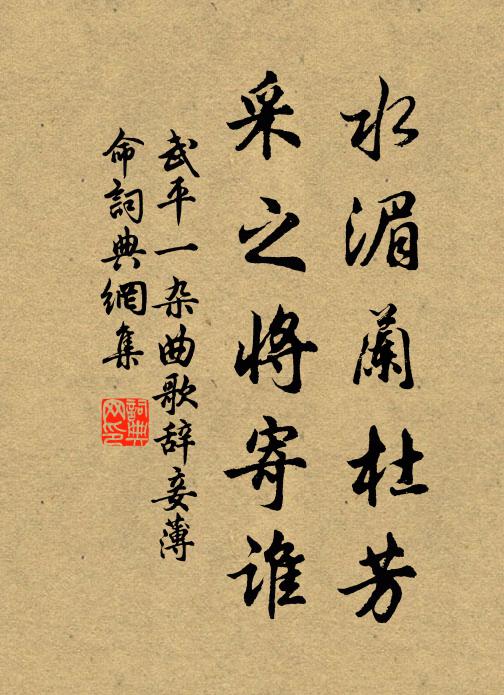 水湄蘭杜芳
采之将寄誰
武平一杂曲歌辞妾薄
命詞典網集
詞典网印